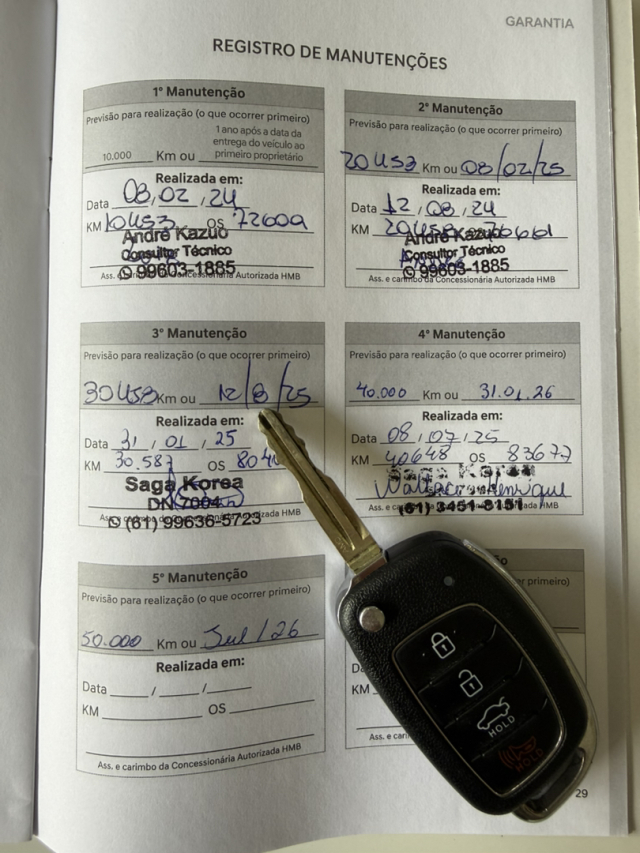 GARANTIA
REGISTRO DE MANUTENÇÕES
1º Manutenção
Previsão para realização (o que ocorrer primeiro)
10.000 Km ou 1 ano após a data da entrega do veículo ao primeiro proprietário
Realizada em:
Data 08, 02, 24
KM 10453 OS 72609
André Kazuo
Consultor Técnico
99603-1885
Ass. e carimbo da Concessionária Autorizada HMB
2º Manutenção
Previsão para realização (o que ocorrer primeiro)
20453 Km ou 08/02/25
Realizada em:
Data 12, 08, 24
KM OS
André Kazuo
Consultor Técnico
99603-1885
Ass. e carimbo da Concessionária Autorizada HMB
3º Manutenção
Previsão para realização (o que ocorrer primeiro)
30453 Km ou 12/8/25
Realizada em:
Data 31, 01, 25
KM 30.587 OS
Saga Korea
DN 7004
(61) 99636-5723
Autorizada HMB
4º Manutenção
Previsão para realização (o que ocorrer primeiro)
40.000 Km ou 31.01.26
Realizada em:
Data 08, 07, 25
KM 40648 OS 83677
Saga Korea
Wallace Henrique
(61) 3451-8151
Autorizada HMB
5º Manutenção
Previsão para realização (o que ocorrer primeiro)
50.000 Km ou Jul/26
Realizada em:
Data / /
KM OS
Ass. e carimbo da Concessionária Autorizada HMB
primeiro)
KM
HOLD
HOLD
29